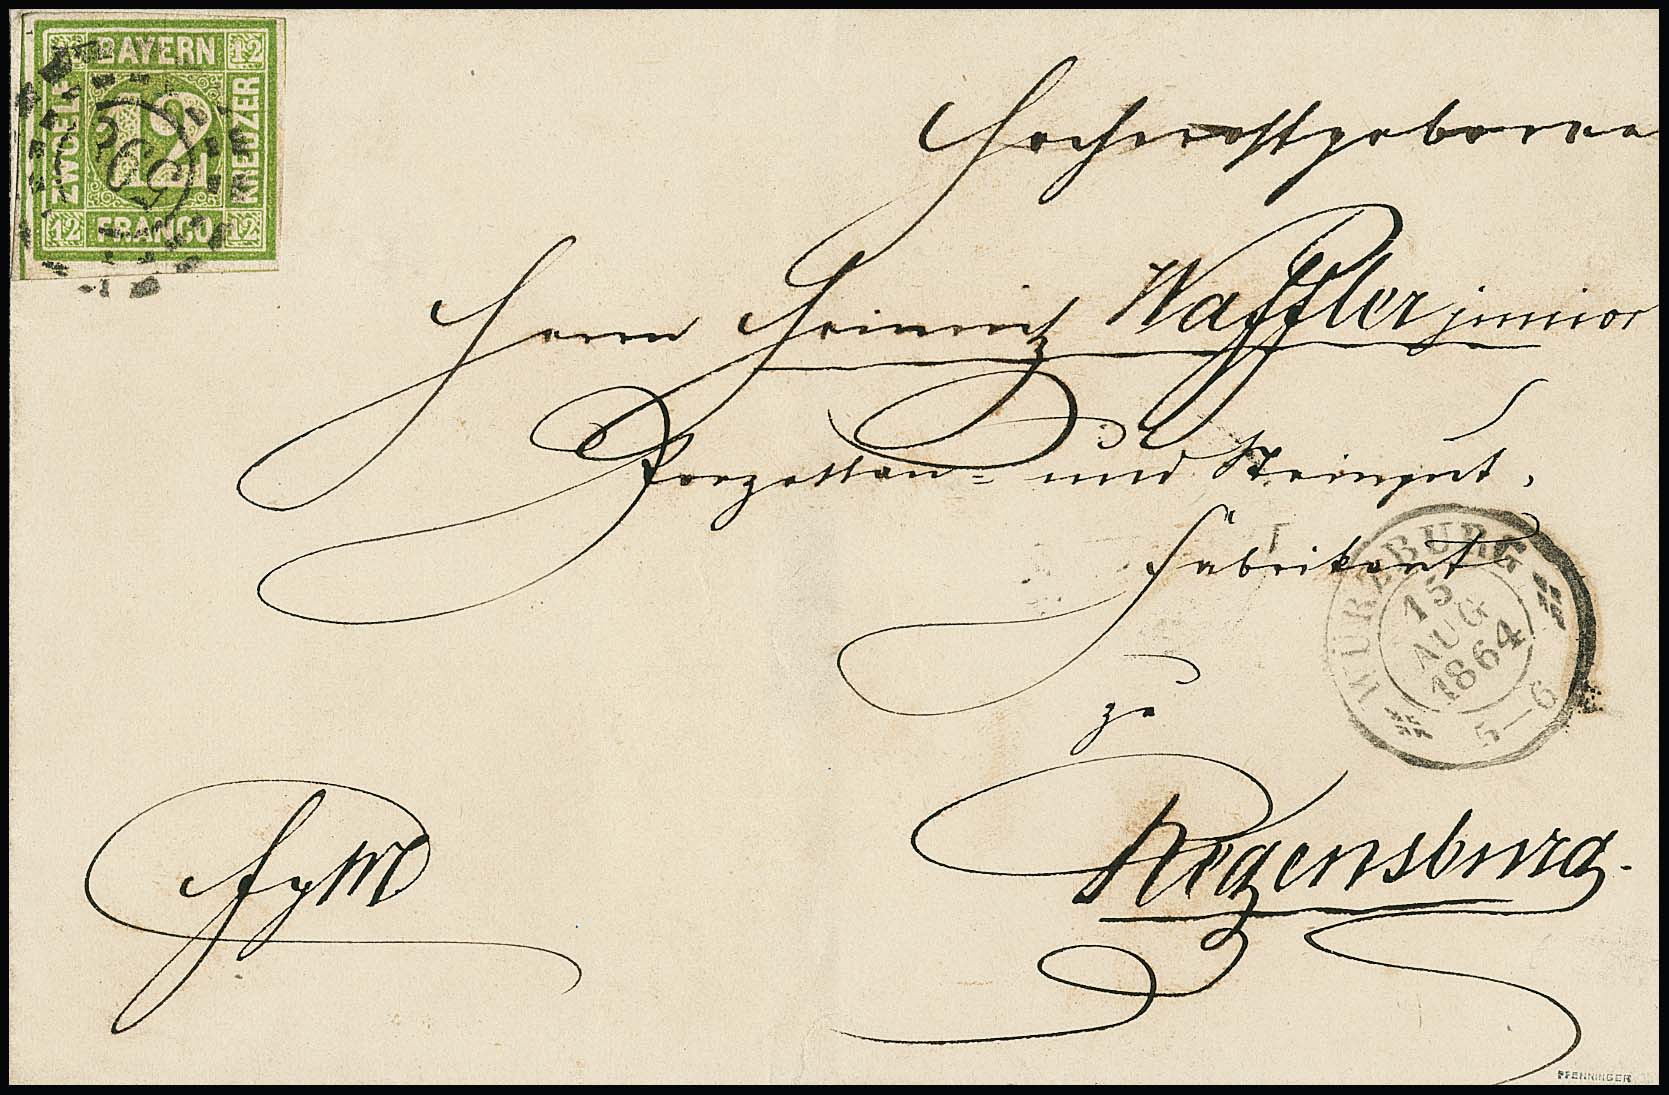 BAYERN
12 12
ZWOELF
12
KREUZER
12 FRANCO 12
Herrn Heinrich Waffler junior
Porzellan- und Steingut-
Fabrikant
WÜRZBURG
15
AUG
1864
5–6
zu
Regensburg.
PFENNINGER